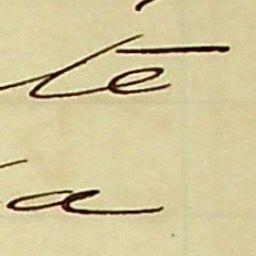 te
a